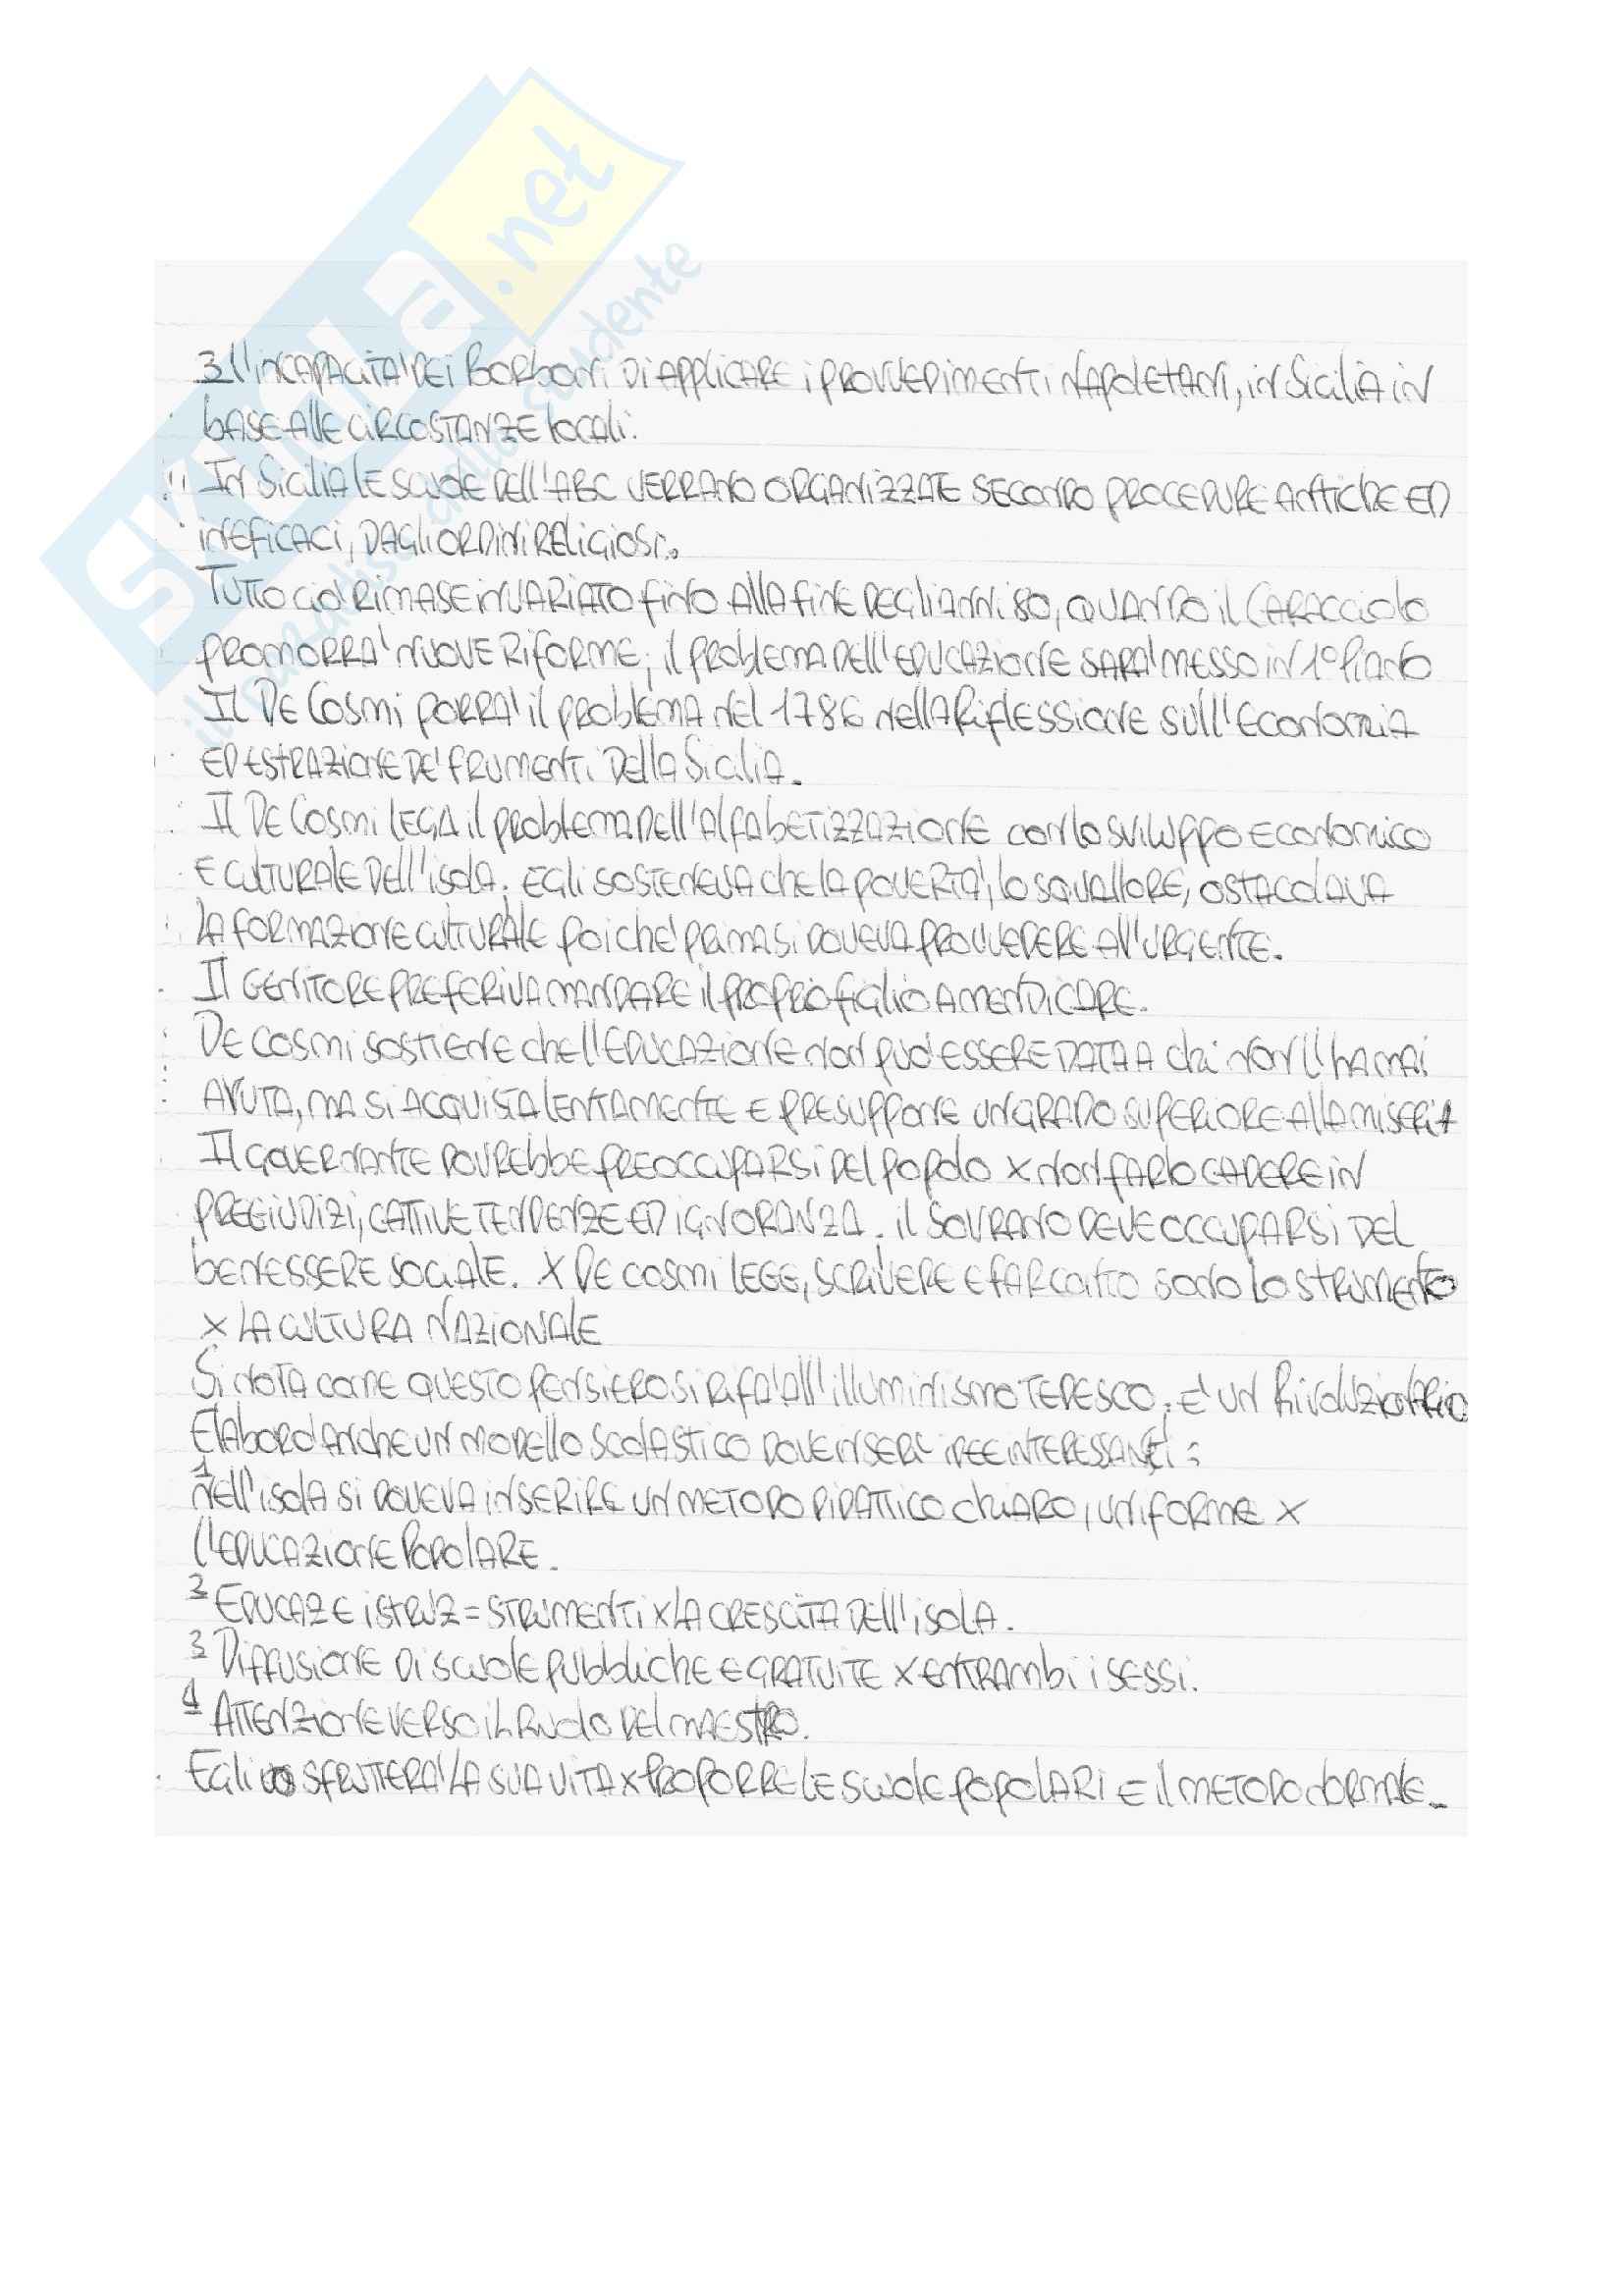 SKUOLA.net
il paradiso dello studente
3 l'incapacità dei Borboni di applicare i provvedimenti napoletani, in Sicilia in
base alle circostanze locali.
In Sicilia le scuole dell'ABC verrano organizzate secondo procedure antiche ed
ineficaci, dagli ordini religiosi.
Tutto ciò rimase invariato fino alla fine degli anni 80, quando il Caracciolo
promorrà nuove riforme; il problema dell'educazione sarà messo in 1° piano
Il De Cosmi porrà il problema nel 1786 nella Riflessione sull'Economia
ed estrazione de' frumenti della Sicilia.
Il De Cosmi lega il problema dell'alfabetizzazione con lo sviluppo economico
e culturale dell'isola; egli sosteneva che la povertà, lo squallore, ostacolava
la formazione culturale poiché prima si doveva provvedere all'urgente.
Il genitore preferiva mandare il proprio figlio a mendicare.
De Cosmi sostiene che l'educazione non può essere data a chi non l'ha mai
avuta, ma si acquista lentamente e presuppone un grado superiore alla miseria
Il governante dovrebbe preoccuparsi del popolo x non farlo cadere in
pregiudizi, cattive tendenze ed ignoranza. Il sovrano deve occuparsi del
benessere sociale. X De Cosmi legg, scrivere e far conto sono lo strumento
x la cultura nazionale
Si nota come questo pensiero si rifà all'illuminismo tedesco; è un Rivoluzionario
Elaborò anche un modello scolastico dove inserì idee interessanti:
1 nell'isola si doveva inserire un metodo didattico chiaro, uniforme x
l'educazione popolare.
2 Educaz e istruz = strumenti x la crescita dell'isola.
3 Diffusione di scuole pubbliche e gratuite x entrambi i sessi.
4 Attenzione verso il ruolo del maestro.
Egli sfrutterà la sua vita x proporre le scuole popolari e il metodo normale.